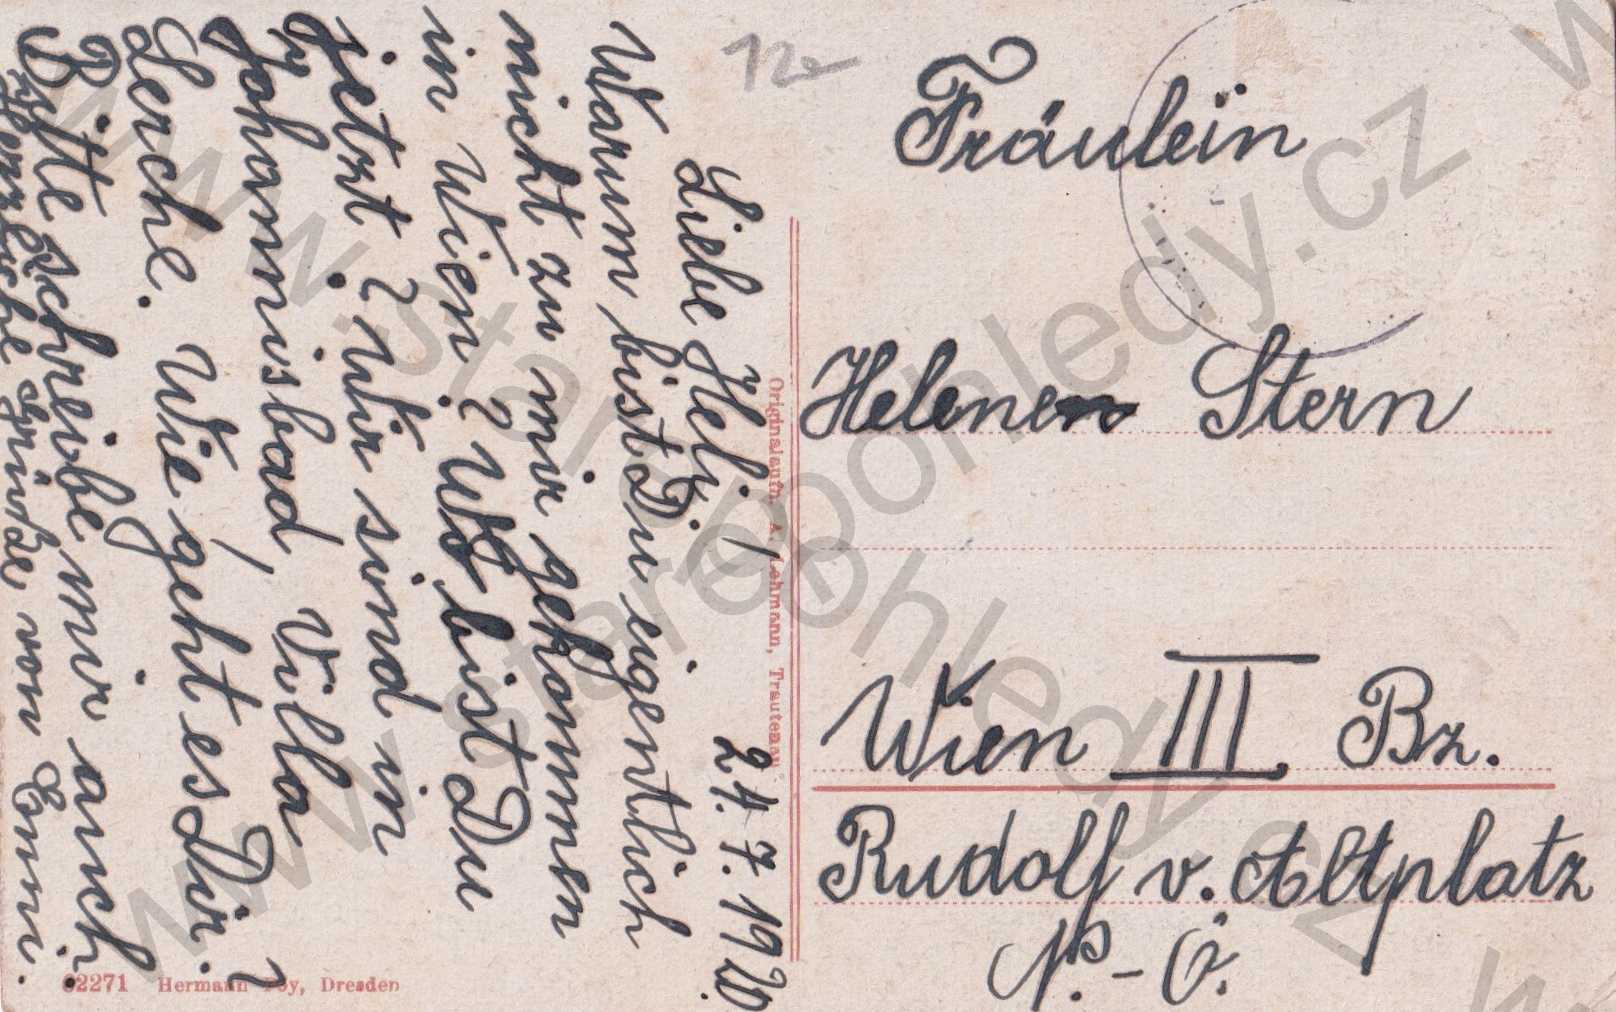 12.-
Liebe Heli!
24.7.1920.
Warum bist Du eigentlich
nicht zu mir gekommen
in Wien? Wo bist Du
jetzt? Wir sind in
Johannisbad, Villa
Lerche. Wie geht es Dir?
Bitte schreibe mir auch.
Herzliche Grüße von Emmi.
Fräulein
Helene Stern
Wien III Bz.
Rudolf v. Altplatz
N.-Ö.
Originalaufn. A. Lehmann, Trautenau.
62271 Hermann Poy, Dresden
www.starepohledy.cz
www.starepohledy.cz